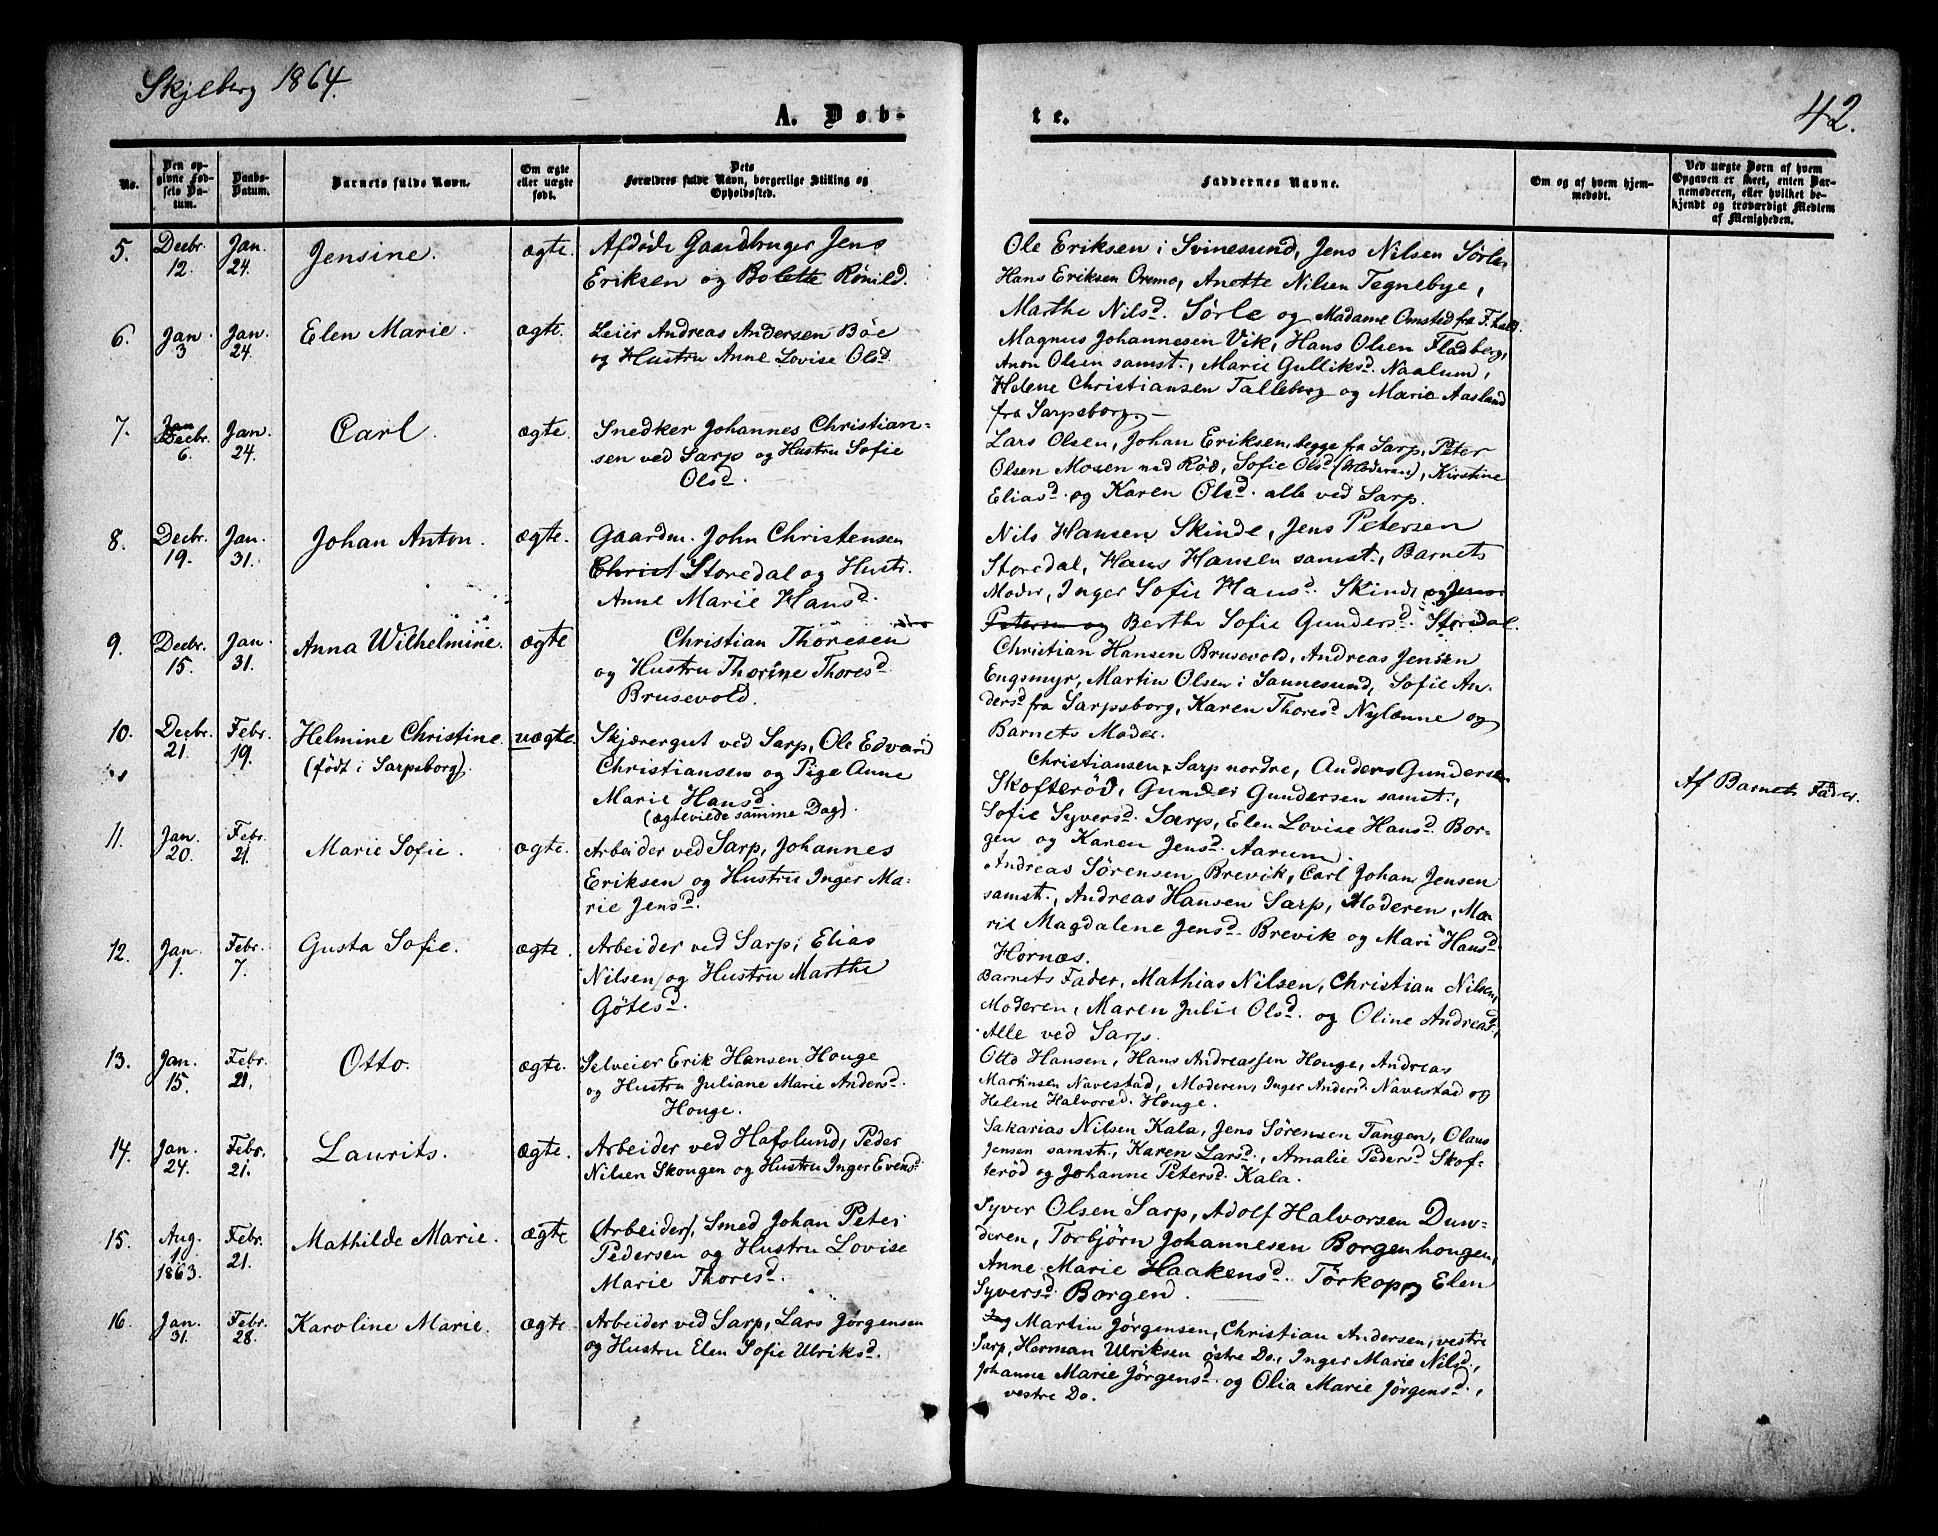 Skjeberg 1864.
42.
A. Døb-
te.
No.
Den op-
givne Fød-
sels Da-
tum.
Daabs-
Datum.
Barnets fulde Navn.
Om ægte
eller uægte
født.
Dets
Forældres fulde Navn, borgerlige Stilling og
Opholdssted.
Faddernes Navne.
Om og af hvem hjem-
medøbt.
Ved uægte Børn af hvem
Opgaven er skeet, enten Bar-
nemoderen, eller hvilket be-
kjendt og troværdigt Medlem
af Menigheden.
5. Decbr. 12. Jan. 24. Jensine. ægte.
Afdøde Gaardbruger Jens
Eriksen og Bolette Römild.
Ole Eriksen i Svinesund, Jens Nilsen Sørle
Hans Eriksen Oremo, Anette Nilsen Tegnebye,
Marthe Nilsd. Sørle og Madame Omsted fra F.hald.
6. Jan. 3 Jan. 24. Elen Marie. ægte.
Leier Andreas Andersen Böe
og Hustru Anne Lovise Olsd
Magnus Johannesen Vik, Hans Olsen Fladberg,
Anon Olsen samst., Marie Gulliksd. Naalum,
Helene Christiansen Talleberg og Marie Aasland
fra Sarpsborg. —
7. Jan Decbr. 6. Jan. 24. Carl. ægte.
Snedker Johannes Christian-
sen ved Sarp og Hustru Sofie
Olsd.
Lars Olsen, Johan Eriksen, begge fra Sarp, Peter
Olsen Mosen ned Röd, Sofie Olsd (Moderen), Kirstine
Eliasd. og Karen Olsd. alle ved Sarp.
8. Decbr. 19. Jan. 31. Johan Anton. ægte.
Gaardm. John Christensen
Christ Storedal og Hustr.
Anne Marie Hansd.
Nils Hansen Skinde, Jens Petersen
Storedal, Hans Hansen samst., Barnets
Moder, Inger Sofie Hansd. Skinde og Jens
Petersen og Berthe Sofie Gundersd. Storedal.
9. Decbr. 15. Jan. 31. Anna Wilhelmine. ægte
Christian Thoresen
og Hustru Thorine Thoresd
Brusevold.
Christian Hansen Brusevold, Andreas Jensen
Engsmyr, Martin Olsen i Sannesund, Sofie An-
dersd fra Sarpsborg, Karen Thoresd Nylænne og
Barnets Moder.
10. Decbr. 21. Febr. 19. Helmine Christine. uægte.
(født i Sarpsborg).
Skjærergut ved Sarp, Ole Edvard
Christiansen og Pige Anne
Marie Hansd.
(ægteviede samme Dag).
Christiansen Sarp nordre, Anders Gundersen
Skofteröd, Gunder Gundersen samst.,
Sofie Syversd. Sarp, Elen Lovise Hansd. Bor-
gen og Karen Jensd. Aarum.
Af Barnets Fader.
11. Jan. 20. Febr. 21. Marie Sofie. ægte.
Arbeider ved Sarp, Johannes
Eriksen og Hustru Inger Ma-
rie Jensd.
Andreas Sörensen Brevik, Carl Johan Jensen
samst., Andreas Hansen Sarp, Moderen, Ma-
rie Magdalene Jensd. Brevik og Mari Hansd.
Hornæs.
12. Jan. 1. Febr. 7. Gusta Sofie. ægte.
Arbeider ved Sarp, Elias
Nilsen og Hustru Marthe
Götesd.
Barnets Fader, Mathias Nilsen, Christian Nilsen,
Moderen, Maren Julie Olsd. og Oline Andreasd,
Alle ved Sarp.
13. Jan. 15. Febr. 21. Otto. ægte.
Selveier Erik Hansen Houge
og Hustru Juliane Marie Andersd.
Houge.
Otto Hansen, Hans Andreassen Houge, Andreas
Martinsen Navestad, Moderen, Inger Andersd. Navestad og
Helene Halvorsd. Houge.
14. Jan. 24. Febr. 21. Laurits. ægte.
Arbeider ved Hafslund, Peder
Nilsen Skougen og Hustru Inger Evensd
Sakarias Nilsen Kala, Jens Sörensen Tangen, Olaus
Jensen samst., Karen Larsd., Amalie Pedersd Skof-
teröd og Johanne Petersd. Kala.
15. Aug. 10. 1863. Febr. 21. Mathilde Marie. ægte
(Arbeider), Smed Johan Peter
Pedersen og Hustru Lovise
Marie Thoresd.
Syver Olsen Sarp, Adolf Halvorsen Dun-
deren, Torbjörn Johannesen Borgenhougen,
Anne Marie Haakensd. Törkop og Elen
Syversd. Borgen.
16. Jan. 31. Febr. 28. Karoline Marie. ægte
Arbeider ved Sarp, Lars Jörgensen
og Hustru Elen Sofie Ulriksd.
Martin Jörgensen, Christian Andersen, vestre
Sarp, Herman Ulriksen östre Do., Inger Marie Nilsd.,
Johanne Marie Jörgensd. og Olia Marie Jörgensd.,
vestre Do.